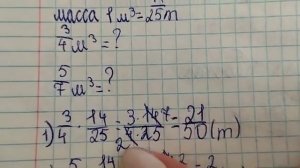 масса 1 м³ = 14/25 т
3/4 м³ = ?
5/7 м³ = ?
1) 3/4 · 14/25 = 3·14 7/4 2·25 = 21/50 (т)
5 14 2